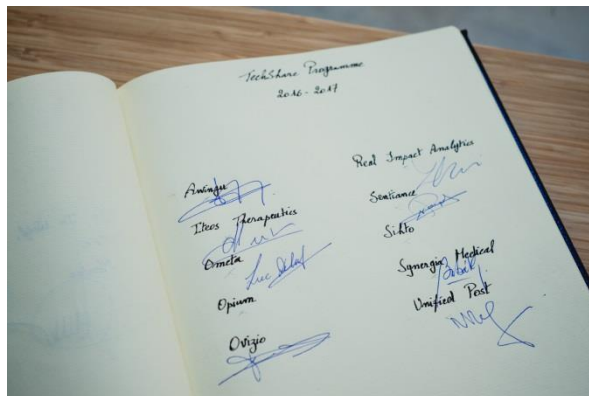 TechShare Programme
2016 - 2017
Awingu
Iteos Therapeutics
Ometa
Opium
Ovizio
Real Impact Analytics
Sentiance
Silto
Synergia Medical
Unified Post